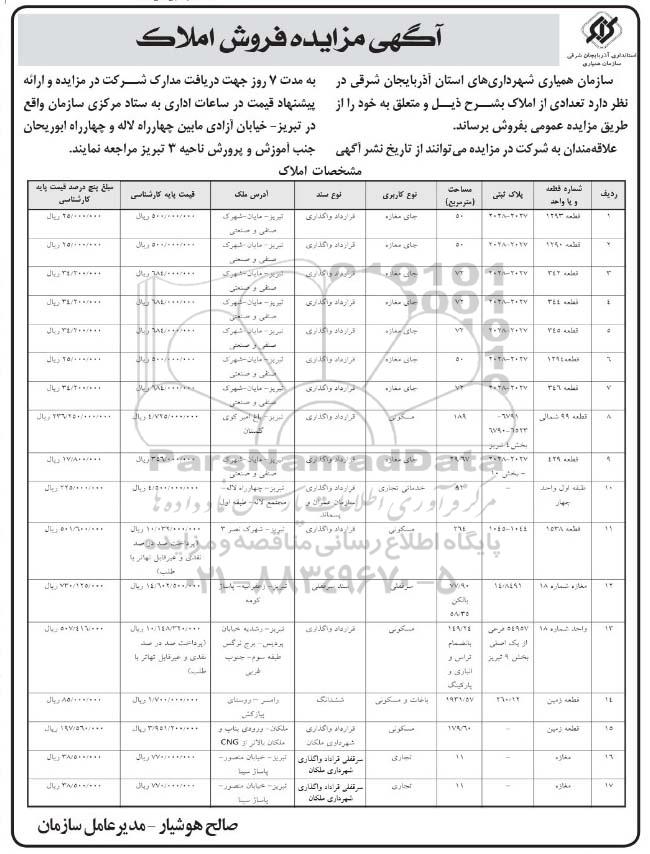 آگهی مزایده فروش املاک
استانداری آذربایجان شرقی
سازمان همیاری
سازمان همیاری شهرداری‌های استان آذربایجان شرقی در
نظر دارد تعدادی از املاک بشرح ذیل و متعلق به خود را از
طریق مزایده عمومی بفروش برساند.
علاقه‌مندان به شرکت در مزایده می‌توانند از تاریخ نشر آگهی
به مدت ۷ روز جهت دریافت مدارک شرکت در مزایده و ارائه
پیشنهاد قیمت در ساعات اداری به ستاد مرکزی سازمان واقع
در تبریز- خیابان آزادی مابین چهارراه لاله و چهارراه ابوریحان
جنب آموزش و پرورش ناحیه ۳ تبریز مراجعه نمایند.
مشخصات املاک
ردیف | شماره قطعه و یا واحد | پلاک ثبتی | مساحت (مترمربع) | نوع کاربری | نوع سند | آدرس ملک | قیمت پایه کارشناسی | مبلغ پنج درصد قیمت پایه کارشناسی
۱ | قطعه ۱۲۹۳ | ۲۰۲۸-۲۰۲۷ | ۵۰ | جای مغازه | قرارداد واگذاری | تبریز- مایان-شهرک صنفی و صنعتی | ۵۰۰/۰۰۰/۰۰۰ ریال | ۲۵/۰۰۰/۰۰۰ ریال
۲ | قطعه ۱۲۹۰ | ۲۰۲۸-۲۰۲۷ | ۵۰ | جای مغازه | قرارداد واگذاری | تبریز- مایان-شهرک صنفی و صنعتی | ۵۰۰/۰۰۰/۰۰۰ ریال | ۲۵/۰۰۰/۰۰۰ ریال
۳ | قطعه ۳۴۲ | ۲۰۲۸-۲۰۲۷ | ۷۲ | جای مغازه | قرارداد واگذاری | تبریز- مایان-شهرک صنفی و صنعتی | ۶۸۴/۰۰۰/۰۰۰ ریال | ۳۴/۲۰۰/۰۰۰ ریال
۴ | قطعه ۳۴۴ | ۲۰۲۸-۲۰۲۷ | ۷۲ | جای مغازه | قرارداد واگذاری | تبریز- مایان-شهرک صنفی و صنعتی | ۶۸۴/۰۰۰/۰۰۰ ریال | ۳۴/۲۰۰/۰۰۰ ریال
۵ | قطعه ۳۴۵ | ۲۰۲۸-۲۰۲۷ | ۷۲ | جای مغازه | قرارداد واگذاری | تبریز- مایان-شهرک صنفی و صنعتی | ۶۸۴/۰۰۰/۰۰۰ ریال | ۳۴/۲۰۰/۰۰۰ ریال
۶ | قطعه۱۲۹۴ | ۲۰۲۸-۲۰۲۷ | ۵۰ | جای مغازه | قرارداد واگذاری | تبریز- مایان-شهرک صنفی و صنعتی | ۵۰۰/۰۰۰/۰۰۰ ریال | ۲۵/۰۰۰/۰۰۰ ریال
۷ | قطعه ۳۴۶ | ۲۰۲۸-۲۰۲۷ | ۷۲ | جای مغازه | قرارداد واگذاری | تبریز- مایان-شهرک صنفی و صنعتی | ۶۸۴/۰۰۰/۰۰۰ ریال | ۳۴/۲۰۰/۰۰۰ ریال
۸ | قطعه ۹۹ شمالی | ۶۷۹۱- ۶۵۲۳-۶۷۹۰ بخش ۴ تبریز | ۱۸۹ | مسکونی | قرارداد واگذاری | تبریز- باغ امیر کوی گلستان | ۴/۷۲۵/۰۰۰/۰۰۰ ریال | ۲۳۶/۲۵۰/۰۰۰ ریال
۹ | قطعه ۴۲۹ | ۲۰۲۸-۲۰۲۷ - بخش ۱۰ | ۲۹/۶۷ | جای مغازه | قرارداد واگذاری | تبریز- مایان-شهرک صنفی و صنعتی | ۳۵۶/۰۰۰/۰۰۰ ریال | ۱۷/۸۰۰/۰۰۰ ریال
۱۰ | طبقه اول واحد چهار | - | ۹۲ | خدماتی تجاری | قرارداد واگذاری سازمان عمران و پسماند | تبریز- چهارراه لاله- مجتمع لاله- طبقه اول | ۴/۵۰۰/۰۰۰/۰۰۰ ریال | ۲۲۵/۰۰۰/۰۰۰ ریال
۱۱ | قطعه ۱۵۳۸ | ۱۰۴۴-۱۰۴۵ | ۲۶۴ | مسکونی | قرارداد واگذاری | تبریز- شهرک نصر ۳ | ۱۰/۰۳۲/۰۰۰/۰۰۰ ریال (پرداخت صد در صد نقدی و غیرقابل تهاتر با طلب) | ۵۰۱/۶۰۰/۰۰۰ ریال
۱۲ | مغازه شماره ۱۸ | ۱۴/۸۴۹۱ | ۷۷/۹۰ بالکن ۵۸/۳۵ | سرقفلی | سند سرقفلی | تبریز- زعفرانیه- پاساژ | ۱۴/۶۰۲/۵۰۰/۰۰۰ ریال | ۷۳۰/۱۲۵/۰۰۰ ریال
۱۳ | واحد شماره ۱۸ | ۵۴۹۵۷ فرعی از یک اصلی بخش ۹ تبریز | ۱۴۹/۲۴ بانضمام تراس و انباری و پارکینگ | مسکونی | قرارداد واگذاری | تبریز- رشدیه خیابان پردیس- برج نرگس طبقه سوم- جنوب غربی | ۱۰/۱۴۸/۳۲۰/۰۰۰ ریال (پرداخت صد در صد نقدی و غیرقابل تهاتر با طلب) | ۵۰۷/۴۱۶/۰۰۰ ریال
۱۴ | قطعه زمین | ۲۶۰/۱۲ | ۱۹۳۱/۵۷ | باغات و مسکونی | ششدانگ | رامسر - روستای | ۱/۷۰۰/۰۰۰/۰۰۰ ریال | ۸۵/۰۰۰/۰۰۰ ریال
۱۵ | قطعه زمین | - | ۱۷۹/۶۰ | مسکونی | قرارداد واگذاری شهرداری ملکان | ملکان- ورودی بناب و ملکان بالاتر از CNG | ۳/۹۵۱/۲۰۰/۰۰۰ ریال | ۱۹۷/۵۶۰/۰۰۰ ریال
۱۶ | مغازه | - | ۱۱ | تجاری | سرقفلی قراداد واگذاری شهرداری ملکان | تبریز- خیابان منصور- پاساژ سینا | ۷۷۰/۰۰۰/۰۰۰ ریال | ۳۸/۵۰۰/۰۰۰ ریال
۱۷ | مغازه | - | ۱۱ | تجاری | سرقفلی قراداد واگذاری شهرداری ملکان | تبریز- خیابان منصور- پاساژ سینا | ۷۷۰/۰۰۰/۰۰۰ ریال | ۳۸/۵۰۰/۰۰۰ ریال
ParsNamadData
مرکز فرآوری اطلاعات پارس نماد داده ها
پایگاه اطلاع رسانی مناقصه و مزایده
۰۲۱-۸۸۳۴۹۶۷۰-۵
صالح هوشیار - مدیرعامل سازمان